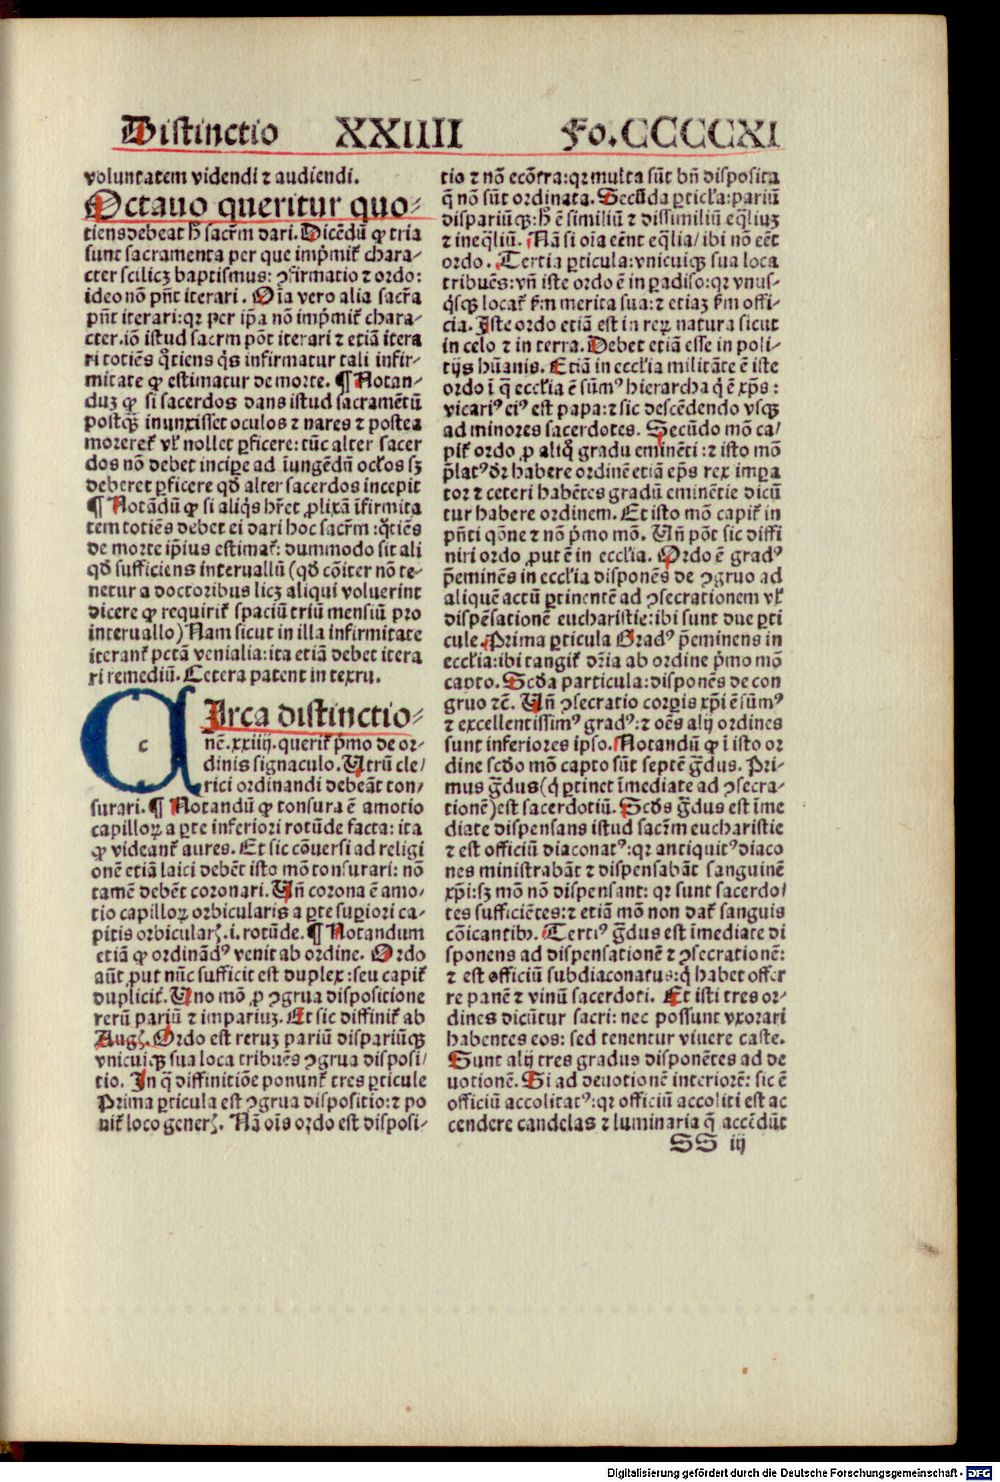 Distinctio XXIIII Fo.CCCCCXI
voluntatem videndi ⁊ audiendi.
Octauo queritur quo⸗
tiens debeat h̄ sacr̄m dari. Dicēdū ꝙ tria
sunt sacramenta per que imp̄mit̄ chara⸗
cter scilicꝫ baptismus: ꝯfirmatio ⁊ ordo:
ideo nō pn̄t iterari. Oīa vero alia sacr̄a
pn̄t iterari: qꝛ per ip̄a nō imp̄mit̄ chara⸗
cter. iō istud sacr̄m pōt iterari ⁊ etiā itera
ri totiēs q̊tiens q̄s infirmatur tali infir⸗
mitate ꝙ estimatur de morte. ¶ Notan⸗
duꝫ ꝙ si sacerdos dans istud sacramētū
postqꝫ inunxisset oculos ⁊ nares ⁊ postea
moreret̄ vl̄ nollet ꝑficere: tūc alter sacer
dos nō debet inciꝑe ad īungēdū oc̄los sꝫ
deberet ꝑficere qd̄ alter sacerdos incepit
¶ Notādū ꝙ si aliq̄s hr̄et ꝓlixā īfirmita
tem totiēs debet ei dari hoc sacr̄m: q̊tiēs
de morte ip̄ius estimat̄: dummodo sit ali
qd̄ sufficiens interuallū (qd̄ cōiter nō te⸗
netur a doctoribus licꝫ aliqui voluerint
dicere ꝙ requirit̄ spaciū triū mensiū pro
interuallo) Nam sicut in illa infirmitate
iterant̄ pctā venialia: ita etiā debet itera
ri remediū. Cetera patent in textu.
CIrca distinctio⸗
c
nē. xxiiij. querit̄ p̄mo de or⸗
dinis signaculo. Vtrū cle/
rici ordinandi debeāt ton⸗
surari. ¶ Notandū ꝙ tonsura ē amotio
capilloꝝ a ꝑte inferiori rotūde facta: ita
ꝙ videant̄ aures. Et sic cōuersi ad religi
onē etiā laici debēt isto mō tonsurari: nō
tamē debēt coronari. Vn̄ corona ē amo⸗
tio capilloꝝ orbicularis a ꝑte suꝑiori ca⸗
pitis orbicularꝭ. i. rotūde. ¶ Notandum
etiā ꝙ ordinādꝰ venit ab ordine. Ordo
aūt ꝓut nūc sufficit est duplex: seu capit̄
duplicit̄. Vno mō ꝓ ꝯgrua dispositione
rerū pariū ⁊ impariuꝫ. Et sic diffinit̄ ab
Augꝭ. Ordo est reruꝫ pariū dispariūqꝫ
vnicuiqꝫ sua loca tribuēs ꝯgrua disposi/
tio. In q̄ diffinitiōe ponunt̄ tres ꝑticule
Prima ꝑticula est ꝯgrua dispositio: ⁊ po
nit̄ loco generꝭ. Nā oīs ordo est disposi⸗
tio ⁊ nō ecōtra: qꝛ multa sūt bn̄ disposita
q̄ nō sūt ordinata. Secūda ꝑticl̄a: pariū
dispariūqꝫ: h̄ ē similiū ⁊ dissimiliū eq̄liuꝫ
⁊ ineq̄liū. Nā si oīa eēnt eq̄lia/ ibi nō eēt
ordo. Tertia ꝑticula: vnicuiqꝫ sua loca
tribuēs: vn̄ iste ordo ē in ꝑadiso: qꝛ vnus⸗
q̄sqꝫ locat̄ ẜm merita sua: ⁊ etiaꝫ ẜm offi⸗
cia. Iste ordo etiā est in reꝝ natura sicut
in celo ⁊ in terra. Debet etiā esse in poli⸗
tijs hūanis. Etiā in eccl̄ia militāte ē iste
ordo ī q̄ eccl̄ia ē sūmꝰ hierarcha q̄ ē xp̄s:
vicariꝰ eiꝰ est papa: ⁊ sic descēdendo vsqꝫ
ad minores sacerdotes. Secūdo mō ca/
pit̄ ordo ꝓ aliq̊ gradu eminēti: ⁊ isto mō
p̄latꝰ dr̄ habere ordinē etiā ep̄s rex imꝑa
tor ⁊ ceteri habētes gradū eminētie dicū
tur habere ordinem. Et isto mō capit̄ in
pn̄ti q̄ōne ⁊ nō p̄mo mō. Vn̄ pōt sic diffi
niri ordo ꝓut ē in eccl̄ia. Ordo ē gradꝰ
p̄eminēs in eccl̄ia disponēs de ꝯgruo ad
aliquē actū ꝑtinentē ad ꝯsecrationem vl̄
dispēsationē eucharistie: ibi sunt due ꝑti
cule. Prima ꝑticula Gradꝰ p̄eminens in
eccl̄ia: ibi tangit̄ dr̄ia ab ordine p̄mo mō
capto. Scd̄a particula: disponēs de con
gruo ⁊c̄. Vn̄ ꝯsecratio corꝑis xp̄i ē sūmꝰ
⁊ excellentissimꝰ gradꝰ: ⁊ oēs alij ordines
sunt inferiores ipso. Notandū ꝙ ī isto or
dine scd̄o mō capto sūt septē g̊dus. Pri⸗
mus g̊dus (q̄ ꝑtinet īmediate ad ꝯsecra⸗
tionē) est sacerdotiū. Scd̄s g̊dus est īme
diate dispensans istud sacr̄m eucharistie
⁊ est officiū diaconatꝰ: qꝛ antiquitꝰ diaco
nes ministrabāt ⁊ dispensabāt sanguinē
xp̄i: sꝫ mō nō dispensant: qꝛ sunt sacerdo/
tes sufficiētes: ⁊ etiā mō non dat̄ sanguis
cōicantibꝰ. Tertiꝰ g̊dus est īmediate di
sponens ad dispensationē ⁊ ꝯsecrationē:
⁊ est officiū subdiaconatus: q̄ habet offer
re panē ⁊ vinū sacerdoti. Et isti tres or⸗
dines dicūtur sacri: nec possunt vxorari
habentes eos: sed tenentur viuere caste.
Sunt alij tres gradus disponētes ad de
uotionē. Si ad deuotionē interiorē: sic ē
officiū accolitatꝰ: qꝛ officiū accoliti est ac
cendere candelas ⁊ luminaria q̄ accēdūt
SS iij
Digitalisierung gefördert durch die Deutsche Forschungsgemeinschaft - DFG